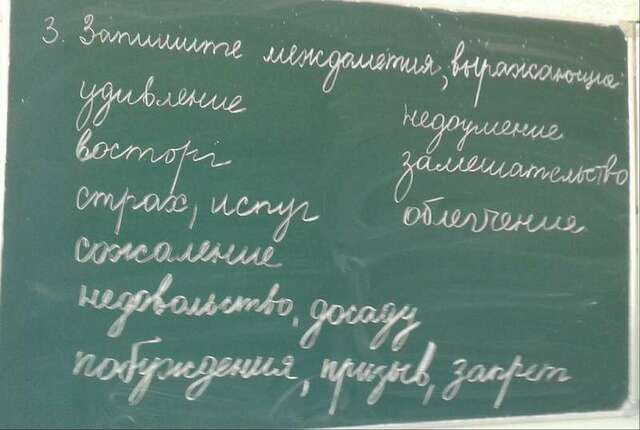 3. Запишите междометия, выражающие:
удивление
восторг
страх, испуг
сожаление
недовольство, досаду
побуждения, призыв, запрет
недоумение
замешательство
облегчение